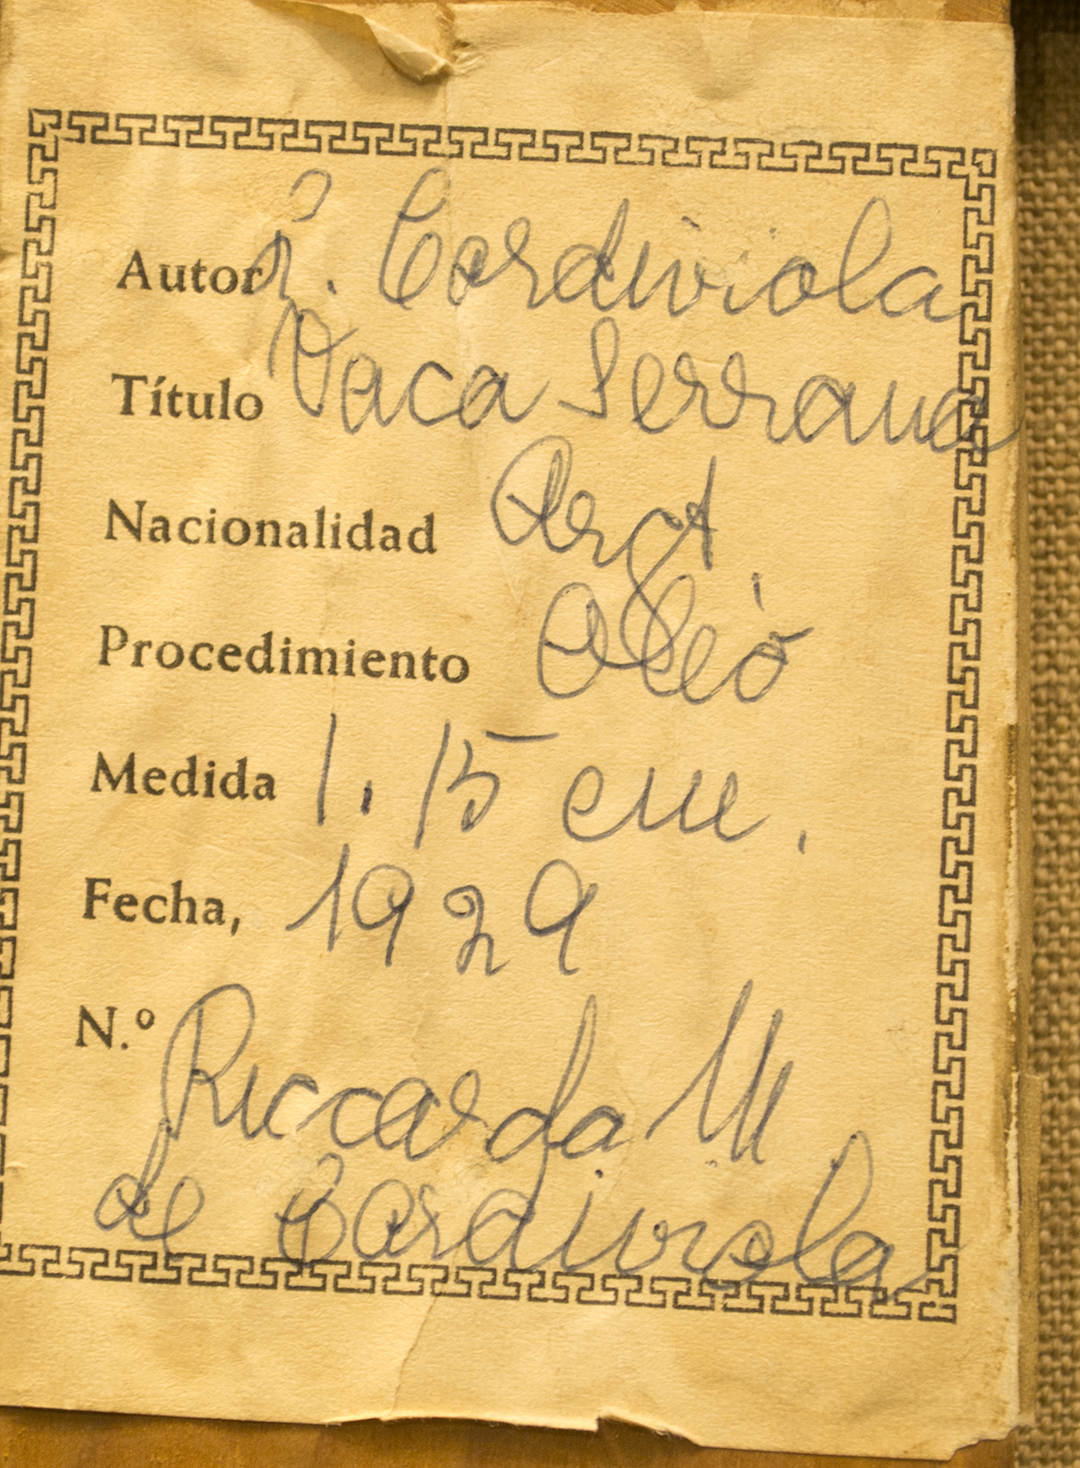 Autor L. Cordiviola
Título Vaca Serrana
Nacionalidad Argt
Procedimiento Oleo
Medida 1.15 cm.
Fecha, 1929
N.º
Riccarda M.
de Cordiviola